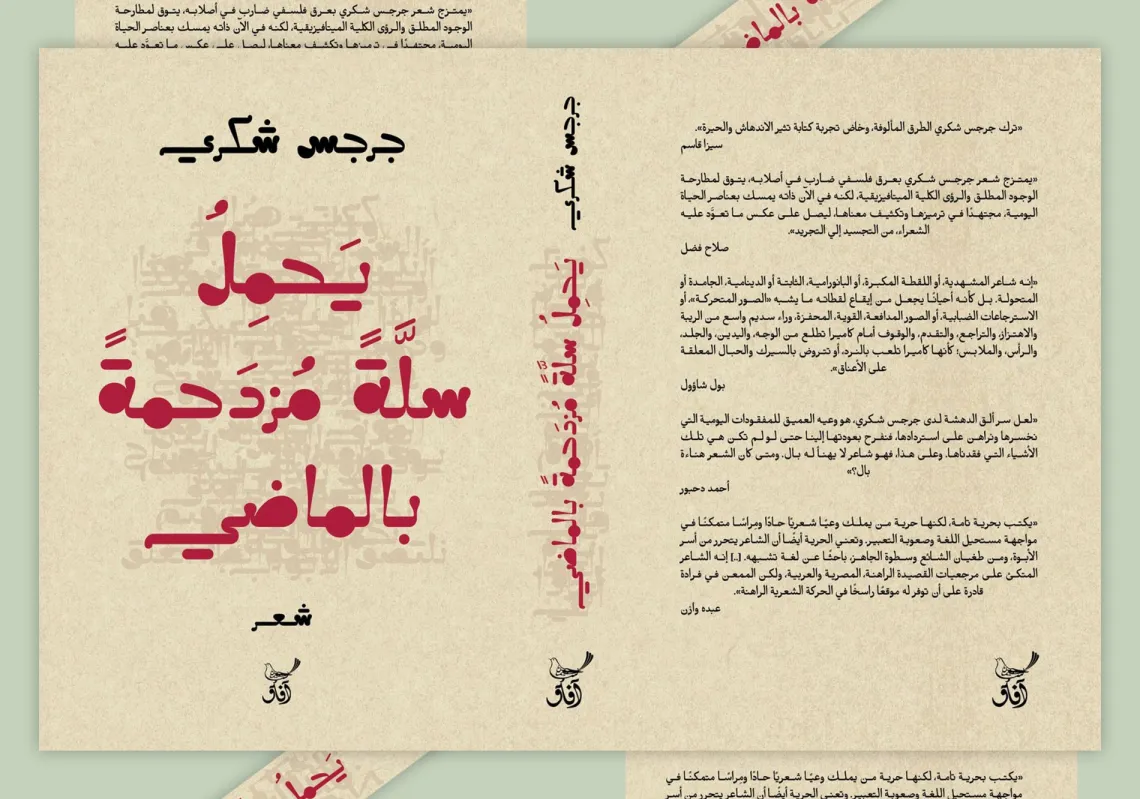 جرجس شكري
يَحمِلُ
سلَّةً مُزدَحمةً
بالماضي
شعر
آفاق
جرجس شكري
يَحمِلُ سلَّةً مُزدَحمةً بالماضي
آفاق
«ترك جرجس شكري الطرق المألوفة، وخاض تجربة كتابة تثير الاندهاش والحيرة».
سيزا قاسم
«يمتزج شعر جرجس شكري بعرق فلسفي ضارب في أصلابه، يتوق لمطارحة
الوجود المطلق والرؤى الكلية الميتافيزيقية، لكنه في الآن ذاته يمسك بعناصر الحياة
اليومية، مجتهدًا في ترميزها وتكثيف معناها، ليصل على عكس ما تعوَّد عليه
الشعراء، من التجسيد إلي التجريد».
صلاح فضل
«إنه شاعر المشهدية، أو اللقطة المكبرة، أو البانورامية، الثابتة أو الدينامية، الجامدة أو
المتحولة. بل كأنه أحيانًا يجعل من إيقاع لقطاته ما يشبه «الصور المتحركة»، أو
الاسترجاعات الضبابية، أو الصور المدافعة، القوية، المحفزة، وراء سديم واسع من الريبة
والاهتزاز، والتراجع، والتقدم، والوقوف أمام كاميرا تطلع من الوجه، واليدين، والجلد،
والرأس، والملابس؛ كأنها كاميرا تلعب بالنرد، أو تتروض بالسيرك والحبال المعلقة
على الأعناق».
بول شاؤول
«لعل سر ألق الدهشة لدى جرجس شكري، هو وعيه العميق للمفقودات اليومية التي
نخسرها ونراهن على استردادها، فنفرح بعودتها إلينا حتى لو لم تكن هي تلك
الأشياء التي فقدناها، وعلى هذا، فهو شاعر لا يهنأ له بال. ومتى كان الشعر هناءة
بال؟»
أحمد دحبور
«يكتب بحرية تامة، لكنها حرية من يملك وعيًا شعريًا حادًا ومِراسًا متمكنًا في
مواجهة مستحيل اللغة وصعوبة التعبير. وتعني الحرية أيضًا أن الشاعر يتحرر من أسر
الأبوة، ومن طغيان الشائع وسطوة الجاهز، باحثًا عن لغة تشبهه. [..] إنه الشاعر
المتكئ على مرجعيات القصيدة الراهنة، المصرية والعربية، ولكن الممعن في فرادة
قادرة على أن توفر له موقعًا راسخًا في الحركة الشعرية الراهنة».
عبده وازن
آفاق
«يمتزج شعر جرجس شكري بعرق فلسفي ضارب في أصلابه، يتوق لمطارحة
الوجود المطلق والرؤى الكلية الميتافيزيقية، لكنه في الآن ذاته يمسك بعناصر الحياة
اليومية، مجتهدًا في ترميزها وتكثيف معناها، ليصل على عكس ما تعوَّد عليه
يَحمِلُ
«يكتب بحرية تامة، لكنها حرية من يملك وعيًا شعريًا حادًا ومِراسًا متمكنًا في
مواجهة مستحيل اللغة وصعوبة التعبير. وتعني الحرية أيضًا أن الشاعر يتحرر من أسر